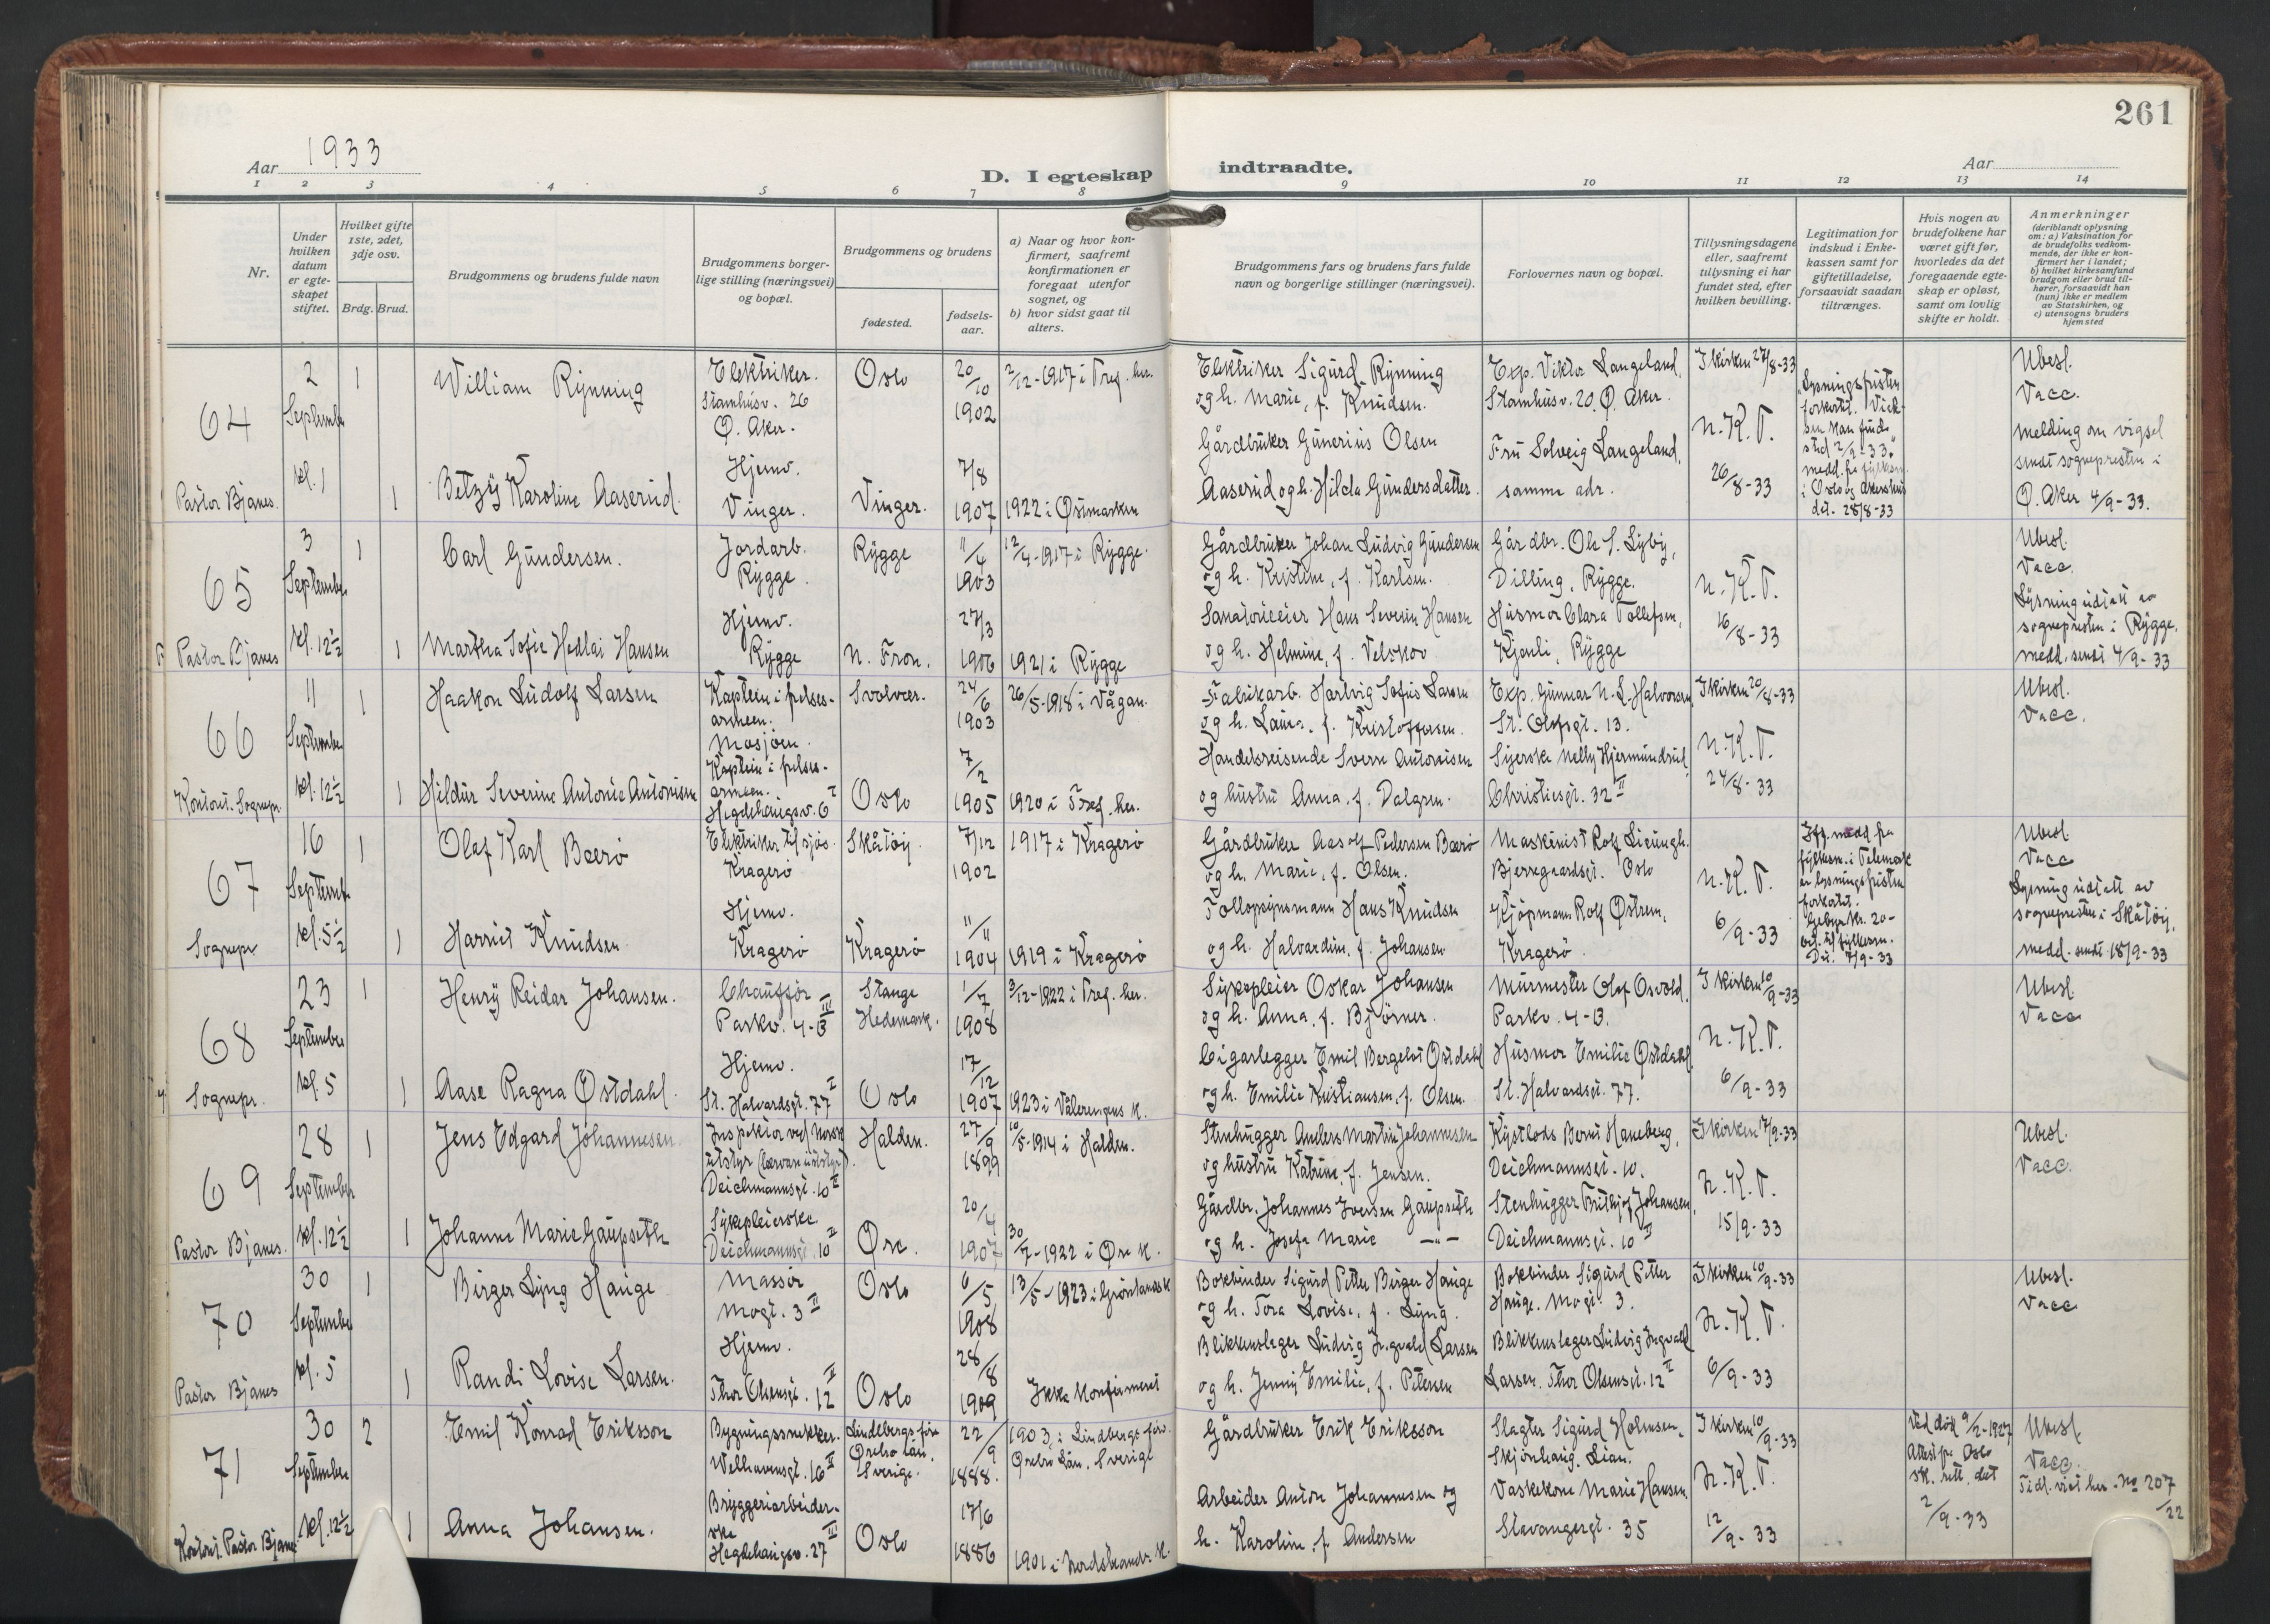 261
Aar 1933
D. I egteskap indtraadte.
Aar
1 2 3 4 5 6 7 8 9 10 11 12 13 14
Nr.
Under hvilken datum er egte-skapet stiftet.
Hvilket gifte 1ste, 2det, 3dje osv.
Brdg. Brud.
Brudgommens og brudens fulde navn
Brudgommens borger-lige stilling (næringsvei) og bopæl.
Brudgommens og brudens
fødested.
fødsels-aar.
a) Naar og hvor kon-firmert, saafremt konfirmationen er foregaat utenfor sognet, og
b) hvor sidst gaat til alters.
Brudgommens fars og brudens fars fulde navn og borgerlige stillinger (næringsvei).
Forlovernes navn og bopæl.
Tillysningsdagene eller, saafremt tillysning ei har fundet sted, efter hvilken bevilling.
Legitimation for indskud i Enke-kassen samt for giftetilladelse, forsaavidt saadan tiltrænges.
Hvis nogen av brudefolkene har været gift før, hvorledes da det foregaaende egte-skap er opløst, samt om lovlig skifte er holdt.
Anmerkninger (deriblandt oplysning om: a) Vaksination for de brudefolks vedkom-mende, der ikke er kon-firmert her i landet; b) hvilket kirkesamfund brudgom eller brud til-hører, forsaavidt han (hun) ikke er medlem av Statskirken, og c) utensogns bruders hjemsted
64
2 September kl. 1
Pastor Bjanes.
1
William Rynning
Elektriker. Stamhusv. 26 Ø. Aker.
Oslo
20/10 1902
2/12-1917 i Tref. her.
Elektriker Sigurd Rynning og h. Marie, f. Knudsen.
Exp. Viktor Langeland, Stamhusv. 20. Ø. Aker.
I kirken 27/8-33
N.K.T. 26/8-33
Lysningsfristen forkortet. Viel-sen kan finde sted 2/9-33. medd. fra fylkesm. i Oslo og Akershus dat. 28/8-33
Ubesl.
Vacc.
melding om vigsel sendt sognepresten i Ø. Aker 4/9-33.
1
Betzy Karoline Aaserud.
Hjemv. Vinger.
Vinger.
7/8 1907
1922 i Østmarken
Gårdbruker Gunerius Olsen Aaserud og h. Hilda Gundersdatter.
Fru Solveig Langeland, samme adr.
65
3 September kl. 12½
Pastor Bjanes
1
Carl Gundersen.
Jordarb. Rygge.
Rygge
11/4 1903
12/4-1917 i Rygge.
Gårdbruker Johan Ludvig Gundersen og h. Kristine, f. Karlsen.
Gårdbr. Ole S. Lyby, Dilling, Rygge.
N.K.T. 16/8-33
Ubesl.
Vacc.
Lysning utstedt av sognepresten i Rygge. medd. sendt 4/9-33
1
Martha Sofie Hedlai Hansen
Hjemv. Rygge
N. Fron.
27/3 1906
1921 i Rygge
Sanatorieeier Hans Severin Hansen og h. Helmine, f. Velskov
Husmor Clara Tollefsen, Kjenli, Rygge
66
11 September kl. 12½
Kontoret. Sognepr.
1
Haakon Ludolf Larsen
Kaptein i frelses-armeen. Mosjøen.
Svolvær.
24/6 1903
26/5-1918 i Vågan.
Fabrikarb. Hartvig Sofus Larsen og h. Laura, f. Kristoffersen.
Exp. Gunnar N. L. Halvorsen, St. Olafsgt. 13.
I kirken 20/8-33
N.K.T. 24/8-33
Ubesl.
Vacc.
1
Hildur Severine Antonie Antonisen
Kaptein i frelses-armeen. Hegdehaugsv. 6 I
Oslo
7/2 1905
1920 i Tref. her.
Handelsreisende Sverre Antonisen og hustru Anna, f. Dalgren.
Syerske Nelly Hjermundrud, Christiesgt. 32 II
67
16 September kl. 5½
Sognepr.
1
Olaf Karl Bærø
Elektriker til sjøs. Kragerø
Skåtøy.
7/12 1902
1917 i Kragerø
Gårdbruker Aasolf Pedersen Bærø og h. Marie, f. Olsen.
Maskinist Rolf Lieungh. Bjerregaardsgt. Oslo
N.K.T. 6/9-33
Ifg. medd. fra fylkesm. i Telemark er lysningsfristen forkortet. Gebyr kr. 20- bet. til fylkesm. Dat. 7/9-33
Ubesl.
Vacc
Lysning utstedt av sognepresten i Skåtøy, medd. sendt 18/9-33
1
Harriet Knudsen
Hjemv. Kragerø
Kragerø
11/11 1904
1919 i Kragerø
Tollopsynsmann Hans Knudsen og h. Halvardine, f. Johansen
Kjøpmann Rolf Østrem, Kragerø.
68
23 September kl. 5
Sognepr.
1
Henry Reidar Johansen.
Chauffør Parkv. 4-B III
Stange Hedemark.
1/7 1908
3/12-1922 i Tref. her.
Sykepleier Oskar Johansen og h. Anna, f. Bjørner.
Murmester Olaf Osvold. Parkv. 4-B.
I kirken 10/9-33
N.K.T. 6/9-33
Ubesl.
Vacc
1
Aase Ragna Østdahl.
Hjemv. St. Halvardsgt. 77 I
Oslo
17/12 1907
1923 i Vålerengens k.
Cigarlegger Emil Bergelot Østdahl og h. Emilie Kristiansen, f. Olsen.
Husmor Emilie Østdahl, St. Halvardsgt. 77.
69
28 September kl. 12½
Pastor Bjanes.
1
Jens Edgard Johannesen
Inspektør ved Norsk utstyr Deichmannsgt. 10 II
Halden.
27/9 1899
10/5-1914 i Halden.
Stenhugger Anders Martin Johannesen og hustru Katrine, f. Jensen.
Kystlods Bernt Haneberg, Deichmannsgt. 10.
I kirken 17/9-33
N.K.T. 15/9-33
Ubesl.
Vacc.
1
Johanne Marie Gaupseth
Sykepleierske. Deichmannsgt. 10 II
Øre.
20/4 1907
30/7-1922 i Øre k.
Gårdbr. Johannes Iversen Gaupseth og h. Josefa Marie —"—
Stenhugger Frithjof Johansen, Deichmannsgt. 10 II
70
30 September kl. 5
Pastor Bjanes
1
Birger Lyng Hauge
Massør Mogt. 3 II
Oslo
6/5 1908
13/5-1923 i Grønlands k
Bokbinder Sigurd Petter Birger Hauge og h. Tora Lovise, f. Lyng.
Bokbinder Sigurd Petter Hauge. Mogt. 3.
I kirken 10/9-33
N.K.T. 6/9-33
Ubesl.
Vacc
1
Randi Lovise Larsen.
Hjemv. Thor Olsensgt. 12 II
Oslo
28/8 1909
Ikke konfirmert
Blikkenslager Ludvig Ingvald Larsen og h. Jenny Emilie, f. Petersen
Blikkenslager Ludvig Ingvald Larsen. Thor Olsensgt. 12 II
71
30 September kl. 12½
Kontoret. Pastor Bjanes
2
Emil Konrad Eriksson
Bygningssnekker. Welhavensgt. 16 II
Lindbergs för. Örebro län, Sverige.
22/9 1888.
1903 i Lindbergs för. Örebro län, Sverige
Gårdbruker Erik Eriksson
Slagter Sigurd Holmsen, Skjønhaug. Lian.
I kirken 10/9-33
N.K.T. 12/9-33
Ved død 9/2-1927 Attest fra Oslo sk. rett, dat 2/9-33
Ubesl.
Vacc.
Tidl. viet her. No 207/22
1
Anna Johansen.
Bryggeriarbeider-ske Hegdehaugsv. 27 III
Oslo
17/6 1886
1901 i Nordstrands k.
Arbeider Anton Johannesen og h. Karoline, f. Andersen
Vaskekone Marie Hansen, Stavangergt. 35